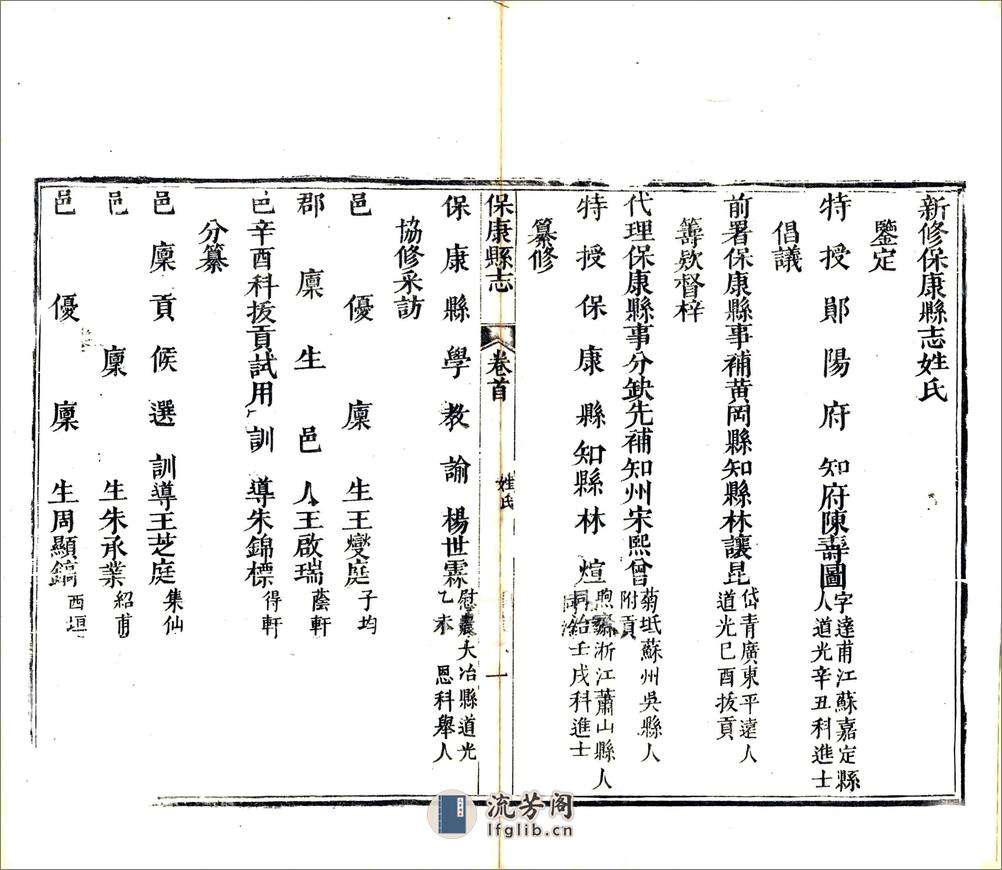 新修保康縣志姓氏
鑒定
特授鄖陽府知府陳壽圖字達甫江蘇嘉定縣
人道光辛丑科進士
倡議
前署保康縣事補黃岡縣知縣林讓昆岱青廣東平遠人
道光己酉拔貢
籌欵督梓
代理保康縣事分缺先補知州宋熙曾菊坻蘇州吳縣人
附貢
纂修
特授保康縣知縣林煊煦齋浙江蕭山縣人
同治壬戌科進士
保康縣志
卷首
姓氏
一
保康縣學教諭楊世霖慰農大冶縣道光
乙未恩科舉人
協修采訪
邑優廩生王燮庭子均
郡廩生邑人王啟瑞蔭軒
邑辛酉科拔貢試用訓導朱錦標得軒
分纂
邑廩貢候選訓導王芝庭集仙
邑廩生朱承業紹甫
邑優廩生周顯鎬西垣
流芳阁
lfglib.cn